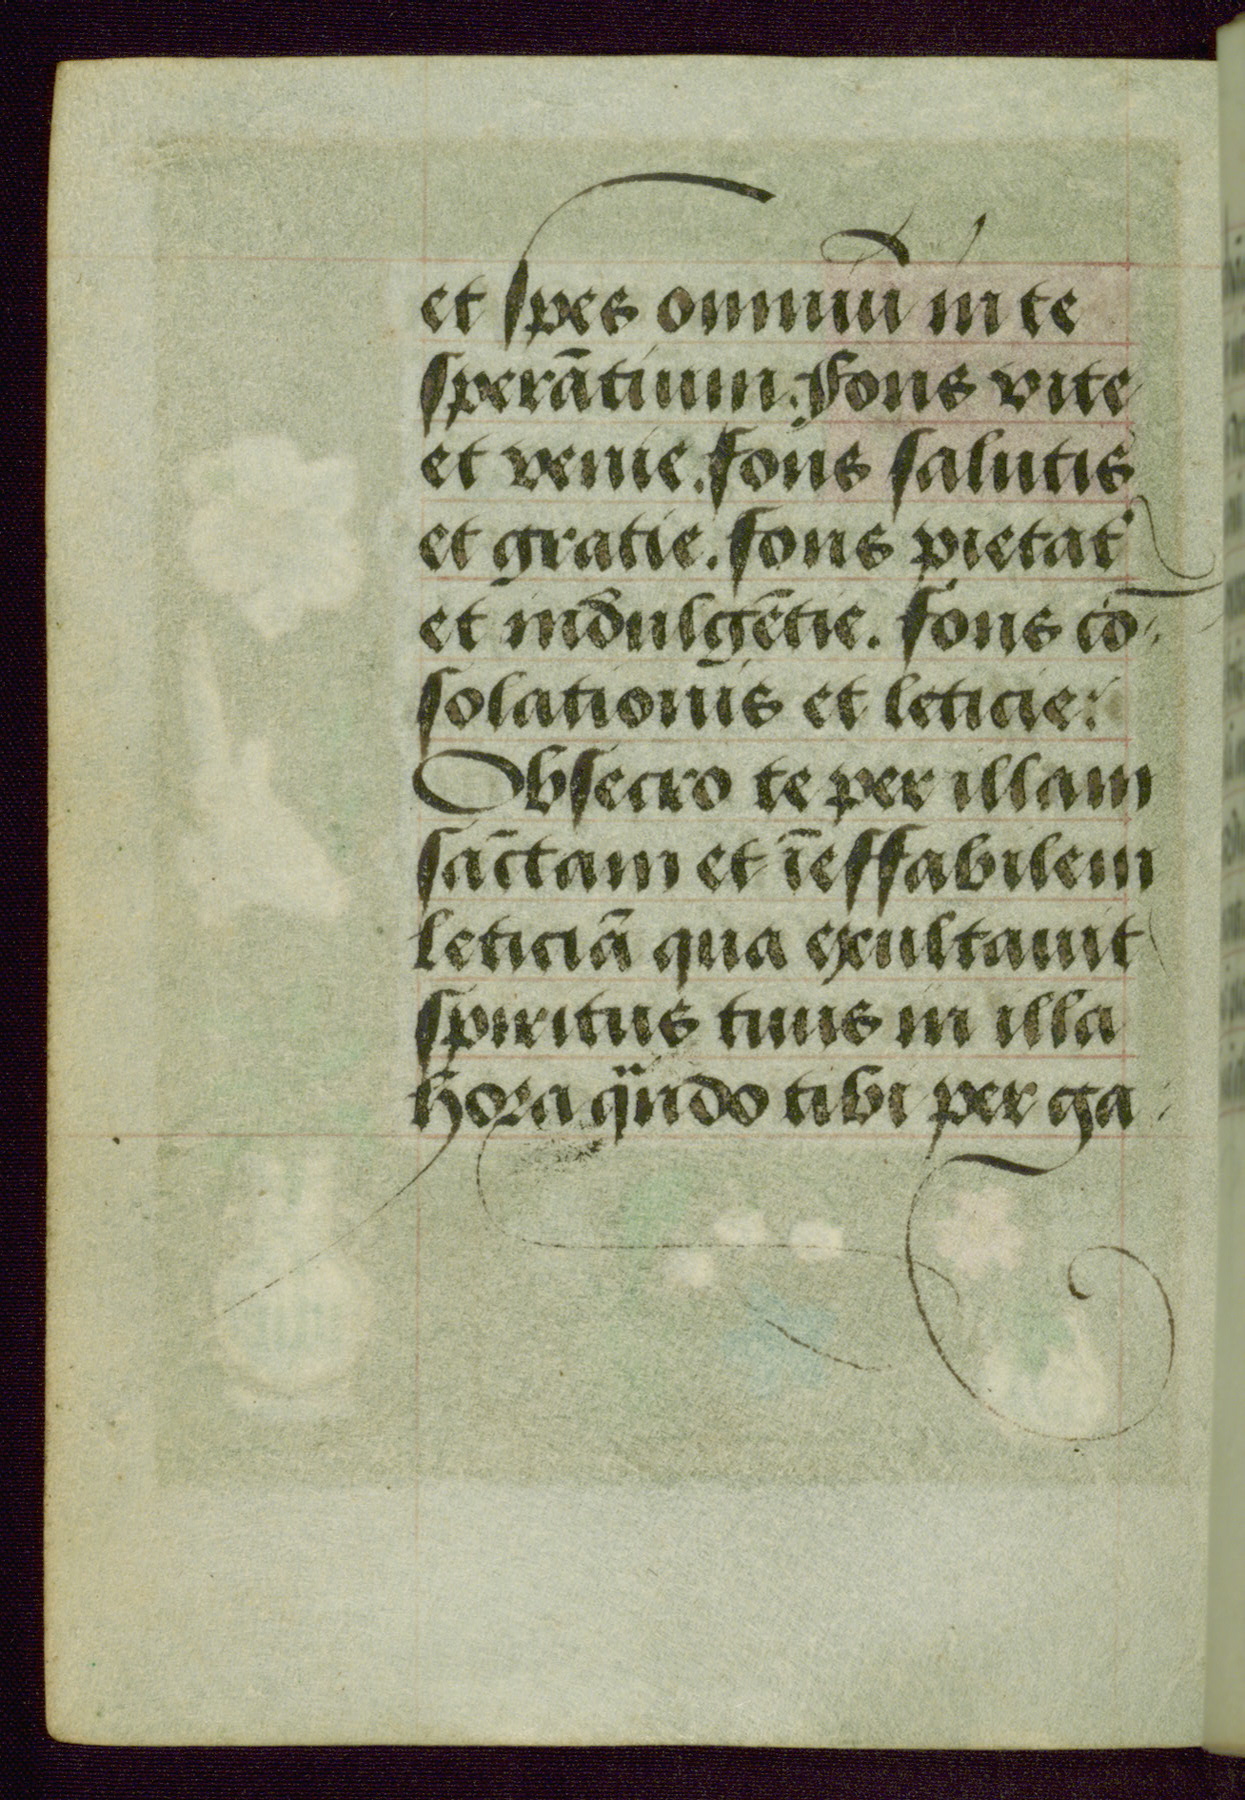 et spes omniū in te
sperātium. Fons vite
et venie. fons salutis
et gratie. fons pietat᷒
et indulgētie. fons cō-
solationis et leticie:
Obsecro te per illam
sāctam et īeffabilem
leticiā qua exultauit
spiritus tuus in illa
hora qn̄do tibi per ga-